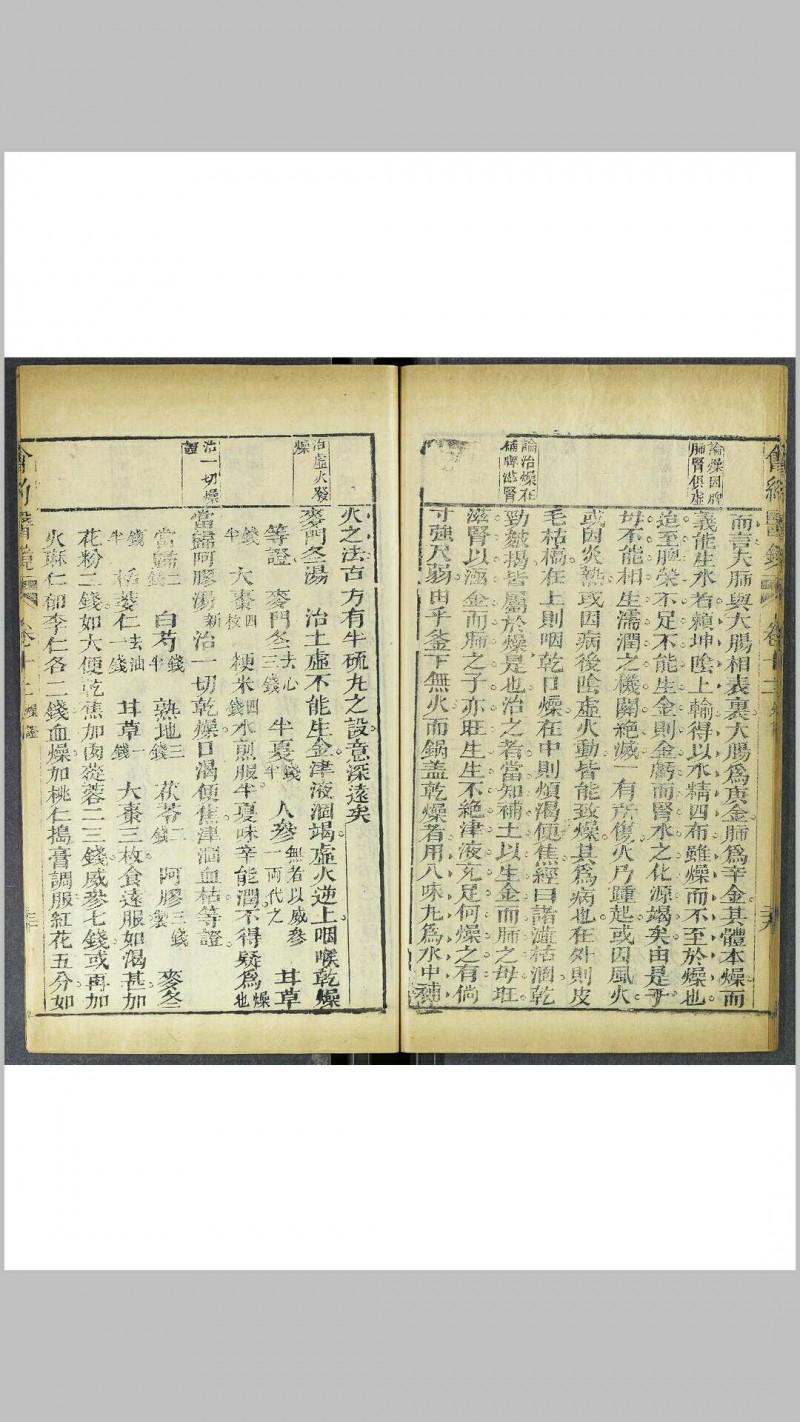 會約醫鏡 卷十二 燥證
論燥因脾
肺腎俱虛
而言夫肺與大腸相表裏大腸爲庚金肺爲辛金其體本燥而
義能生水者賴坤陰上輸得以水精四布雖燥而不至於燥也
迨至脾榮不足不能生金則金虧而腎水之化源竭矣由是子
母不能相生濡潤之機關絕滅一有所傷火乃踵起或因風火
或因炎熱或因病後陰虛火動皆能致燥其爲病也在外則皮
毛枯槁在上則咽乾口燥在中則煩渴便焦經曰諸澁枯涸乾
勁皴揭皆屬於燥是也治之者當知補土以生金而肺之母旺
論治燥在
補脾滋腎
滋腎以涵金而肺之子亦旺生生不絕津液充足何燥之有倘
寸強尺弱由乎釜下無火而鍋盖乾燥者用八味丸爲水中補
火之法古方有半硫丸之設意深遠矣
治虛火發
燥
麥門冬湯 治土虛不能生金津液涸竭虛火逆上咽喉乾燥
等證 麥門冬去心三錢 半夏錢半 人參一兩無者以威參代之 甘草
錢半 大棗四枚 粳米四錢 水煎服半夏味辛能潤不得疑爲燥也
治一切燥
證
當歸阿膠湯新 治一切乾燥口渴便焦津涸血枯等證
當歸二錢 白芍錢半 熟地三錢 茯苓二錢 阿膠三錢製 麥冬
錢半 栝蔞仁去油一錢 甘草一錢 大棗三枚食遠服如渴甚加
花粉二錢如大便乾焦加肉蓯蓉二三錢威參七錢或再加
火麻仁郁李仁各二錢血燥加桃仁搗膏調服紅花五分如
會約醫鏡 卷十二 燥證